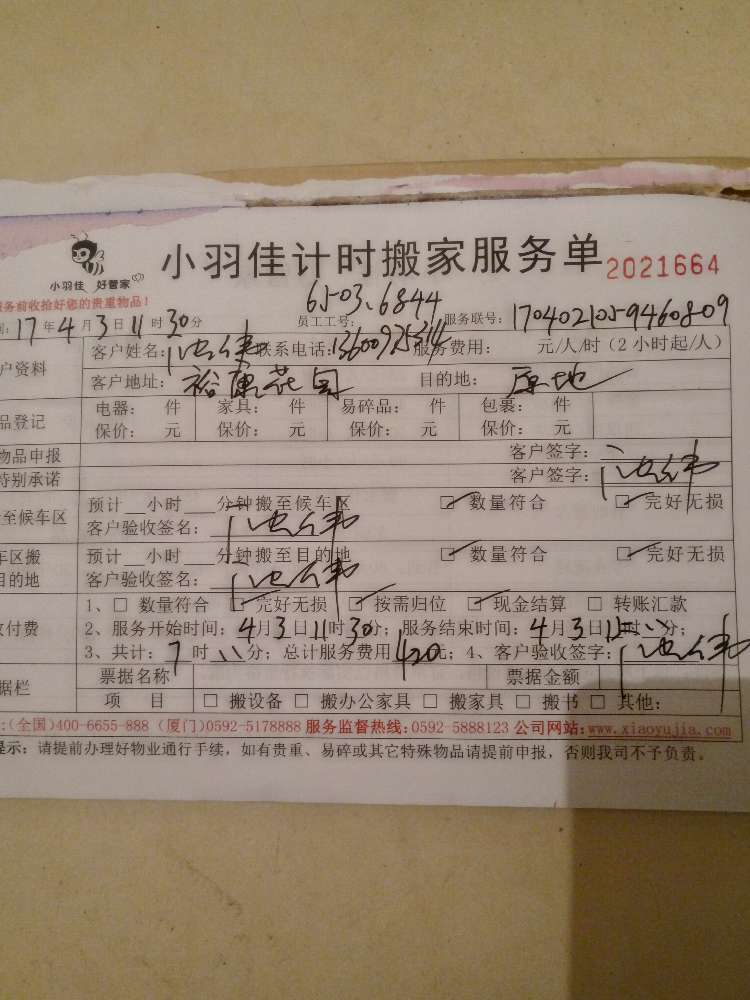 小羽佳 好管家
小羽佳计时搬家服务单 2021664
务前收拾好您的贵重物品!
6503.6844
17年4月3日11时30分 员工工号: 服务联号: 170402105-9460809
户资料 客户姓名: 联系电话: 服务费用: 元/人/时(2小时起/人)
客户地址: 裕康花园 目的地: 原地
品登记 电器: 件 家具: 件 易碎品: 件 包裹: 件
保价: 元 保价: 元 保价: 元 保价: 元
物品申报 客户签字:
特别承诺 客户签字:
至候车区 预计__小时___分钟搬至候车区 ☑ 数量符合 ☑ 完好无损
客户验收签名:
车区搬 预计__小时___分钟搬至目的地 ☑ 数量符合 ☑ 完好无损
目的地 客户验收签名:
付费 1、□ 数量符合 ☑ 完好无损 ☑ 按需归位 ☑ 现金结算 □ 转账汇款
2、服务开始时间: 4月3日11时30分; 服务结束时间: 4月3日 时 分;
3、共计: 7时 分; 总计服务费用420元; 4、客户验收签字:
据栏 票据名称 票据金额
项 目 □ 搬设备 □ 搬办公家具 □ 搬家具 □ 搬书 □ 其他:
:(全国)400-6655-888 (厦门)0592-5178888 服务监督热线:0592-5888123 公司网站:www.xiaoyujia.com
提示: 请提前办理好物业通行手续,如有贵重、易碎或其它特殊物品请提前申报,否则我司不予负责。